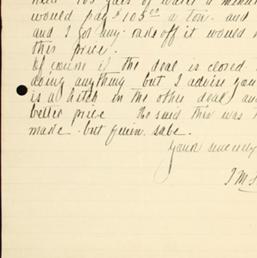 would pay $105.00 a ton. and
and I got any rake off it would
this price.
Of course if the deal is closed
doing anything but I advise you
is a hitch in the other deal an
better price he said this was
made. but quien sabe.
Yours sincerely